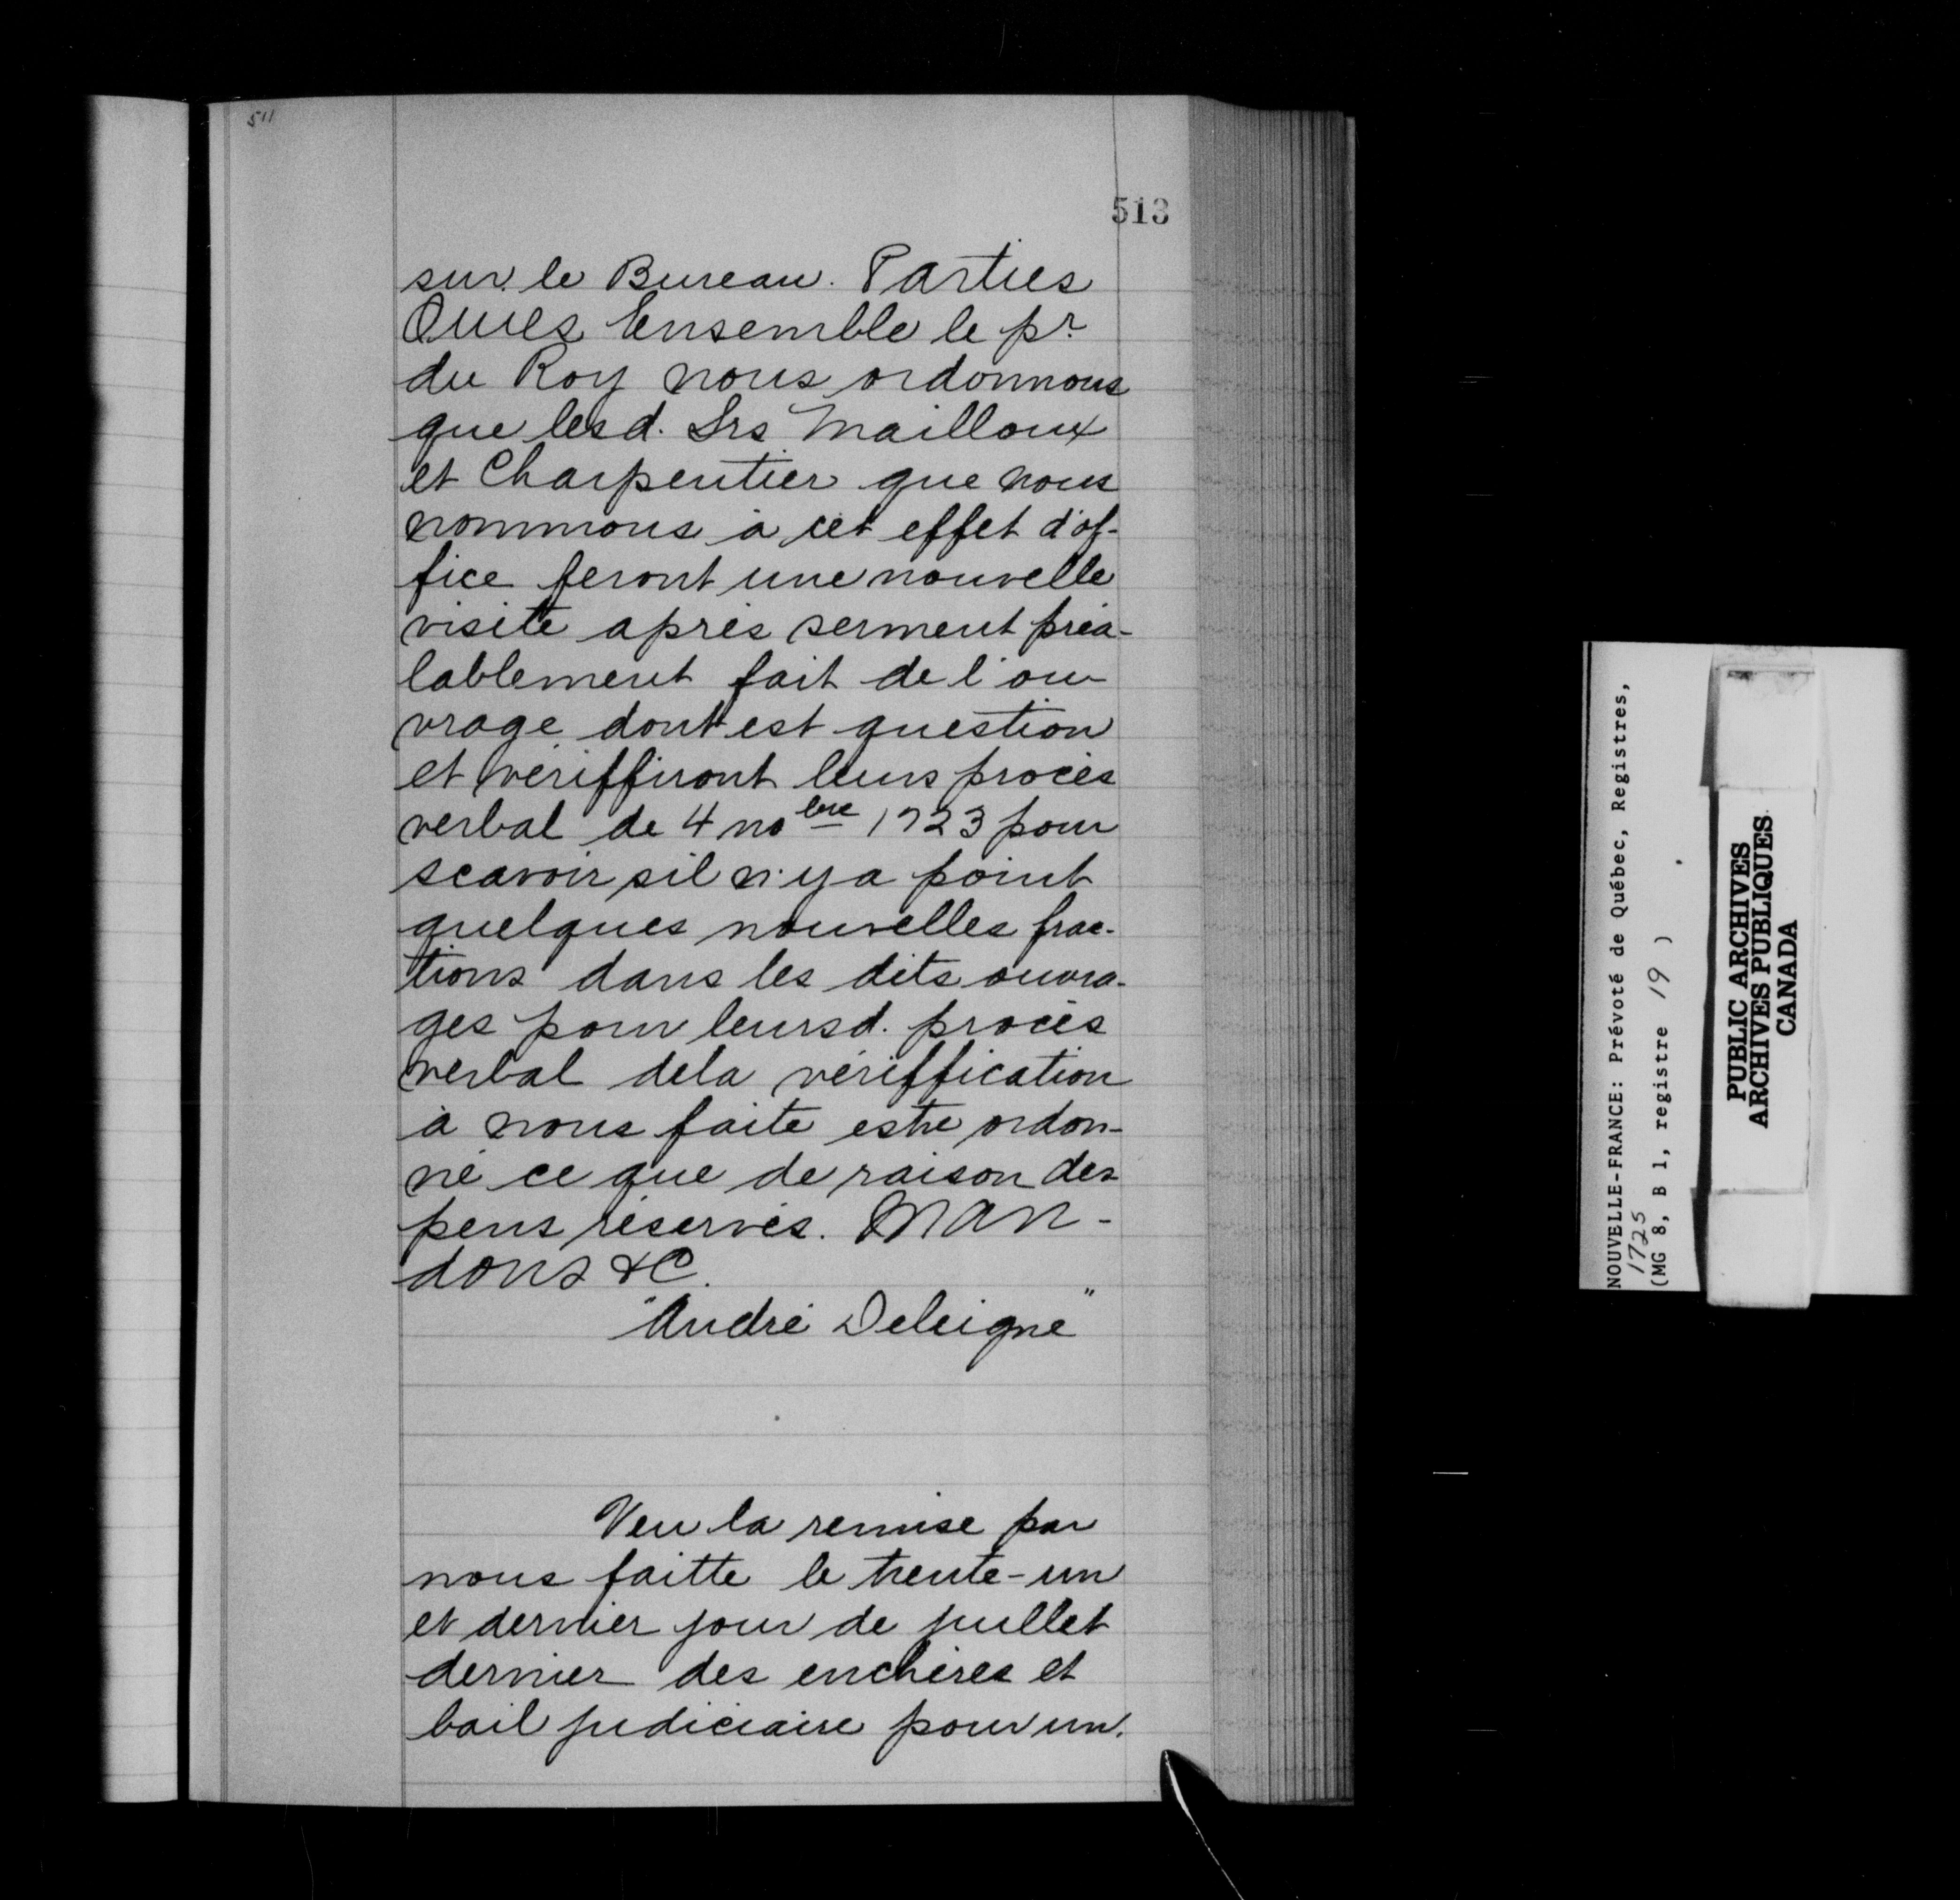 511
513
sur le Bureau. Parties
Ouies Ensemble le pr
du Roy nous ordonnons
que lesd. Srs Mailloux
et Charpentier que nous
nommons à cet effet d'of-
fice feront une nouvelle
visite après serment préa-
lablement fait de l'ou-
vrage dont est question
et vériffiront leurs procès
verbal de 4 nobre 1723 pour
scavoir sil n'y a point
quelques nouvelles frac-
tions dans les dits ouvra-
ges pour leursd. procès
verbal dela vériffication
à nous faite estre ordon-
né ce que de raison des-
pens réservés. Man-
dons &C.
"André Deleigne"
Veu la remise par
nous faitte le trente-un
et dernier jour de juillet
dernier des enchères et
bail judiciaire pour un
NOUVELLE-FRANCE: Prévoté de Québec, Registres,
1725
(MG 8, B 1, registre 19 )
PUBLIC ARCHIVES
ARCHIVES PUBLIQUES
CANADA